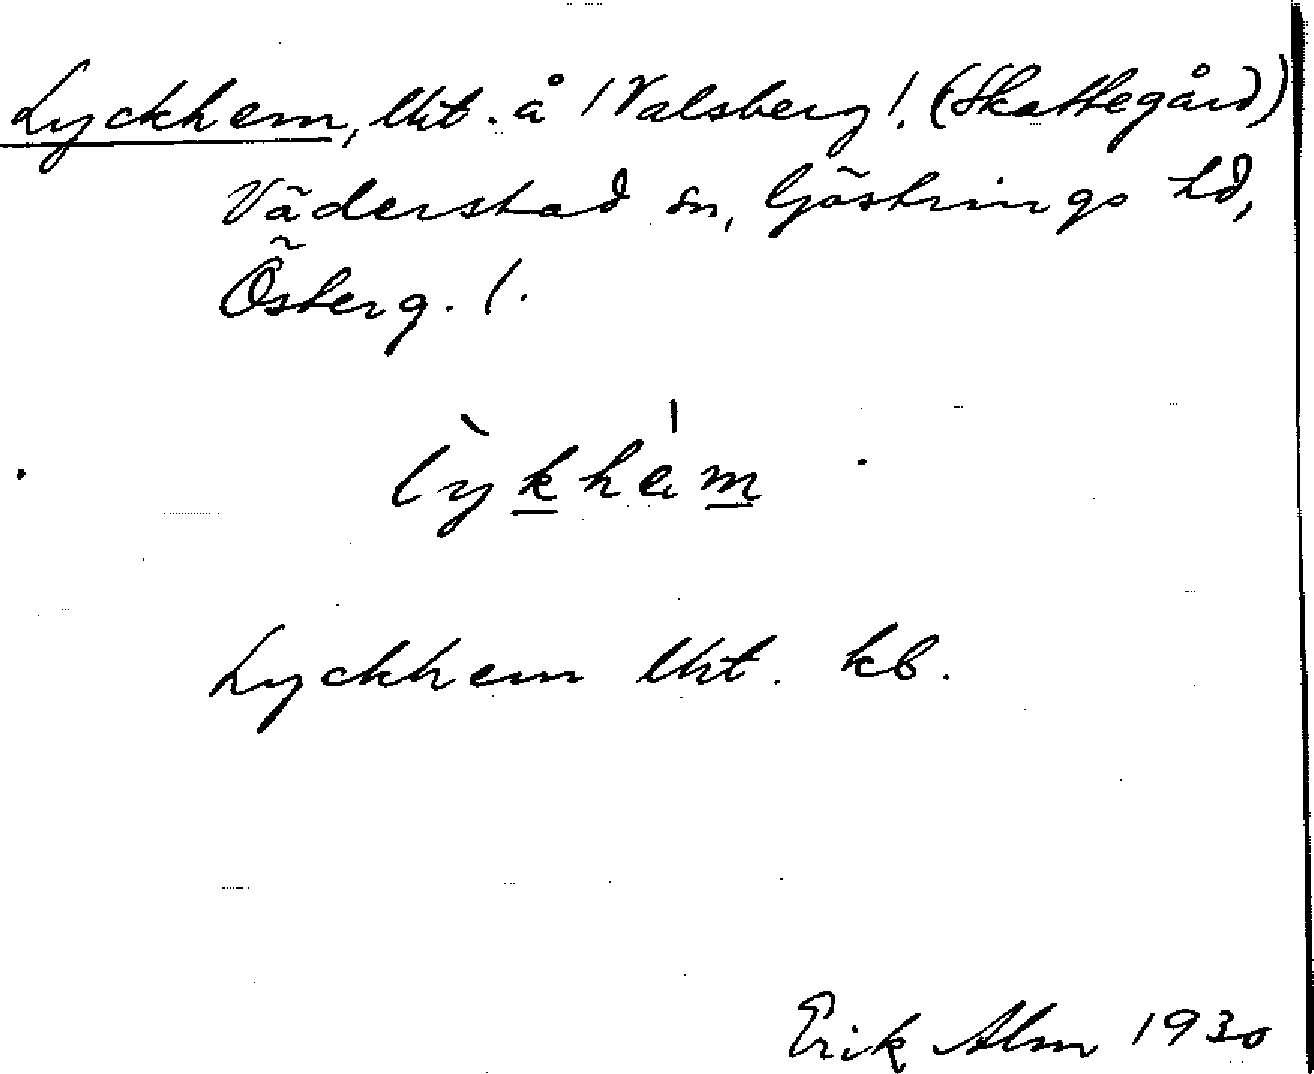 Lyckhem, lht. å /Valsberg/. (Skattegård)
Väderstad sn, Göstrings hd,
Österg. l.
lỳkhe̍m
Lyckhem lht. kb.
Erik Alm 1930